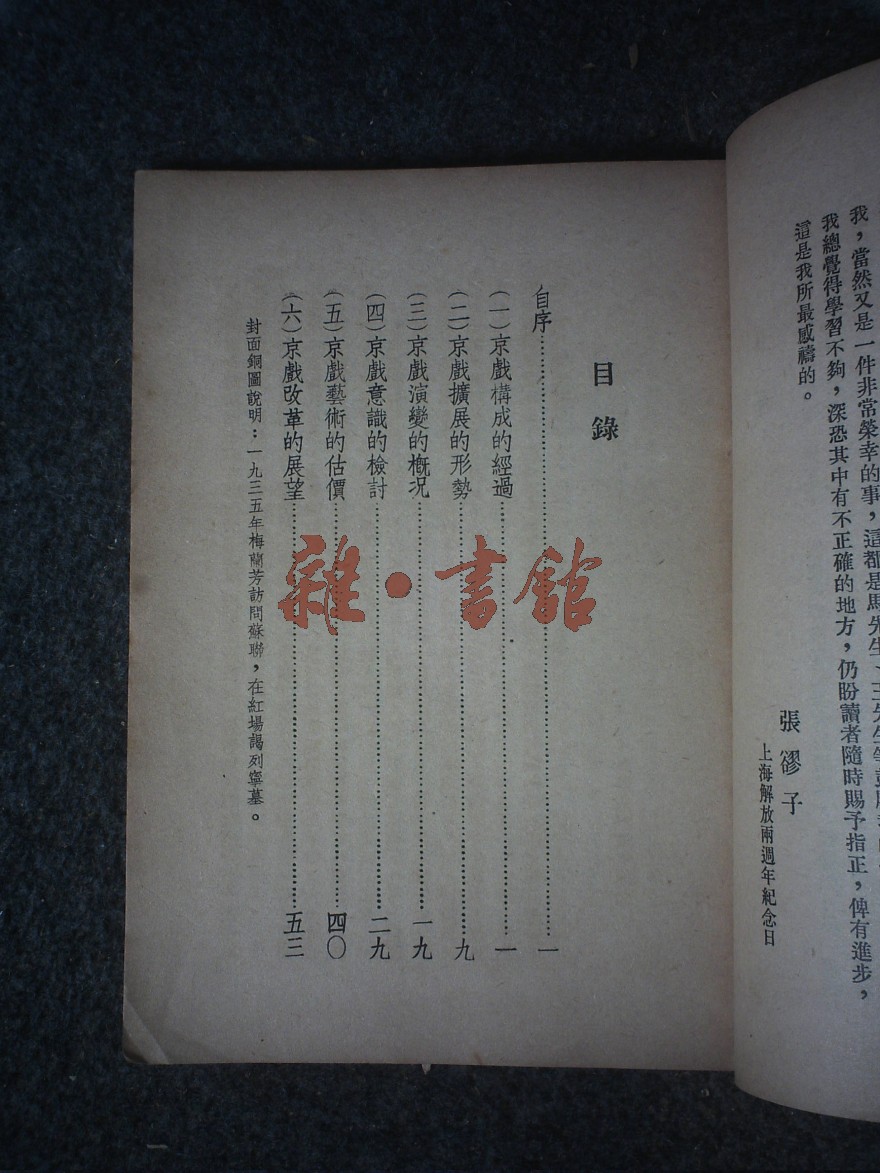 我，當然又是一件非常榮幸的事，這都是馬先生、王先生等
我總覺得學習不夠，深恐其中有不正確的地方，仍盼讀者隨時賜予指正，俾有進步，
這是我所最感禱的。
張謬子
上海解放兩週年紀念日
目錄
自序……一
(一)京戲構成的經過……一
(二)京戲擴展的形勢……九
(三)京戲演變的概況……一九
(四)京戲意識的檢討……二九
(五)京戲藝術的估價……四〇
(六)京戲改革的展望……五三
封面銅圖說明：一九三五年梅蘭芳訪問蘇聯，在紅場謁列寧墓。
雜·書館